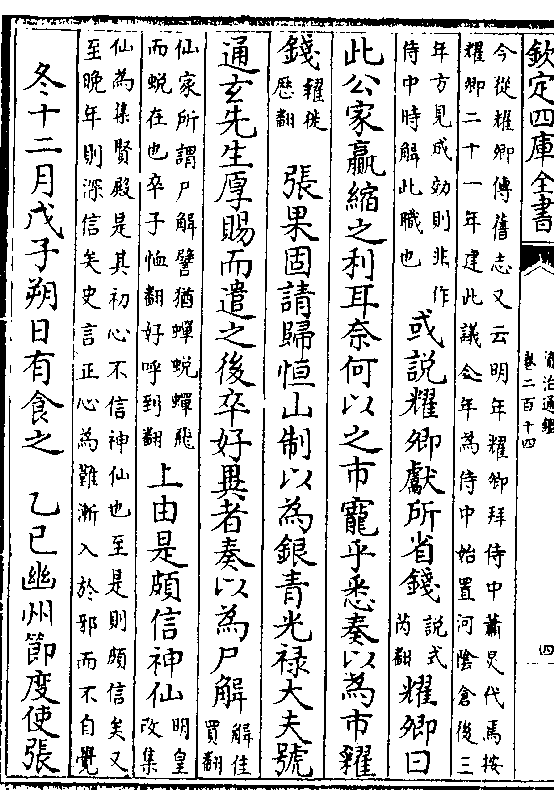 欽定四庫全書
資治通鑑
卷二百十四
四
今從耀卿傳舊志又云明年耀卿拜侍中蕭炅代焉按
耀卿二十一年建此議今年為侍中始置河陰倉後三
年方見成効則非作
侍中時解此職也
或説耀卿獻所省錢
説式
芮翻
耀卿曰
此公家贏縮之利耳奈何以之市寵乎悉奏以為市糴
錢
糴徙
厯翻
張果固請歸恒山制以為銀青光禄大夫號
通玄先生厚賜而遣之後卒好異者奏以為尸解
解佳
買翻
仙家所謂尸解譬猶蟬蜕蟬飛
而蜕在也卒子恤翻好呼到翻
上由是頗信神仙
明皇
改集
仙為集賢殿是其初心不信神仙也至是則頗信矣又
至晚年則深信矣史言正心為難漸入於邪而不自覺
冬十二月戊子朔日有食之
乙巳幽州節度使張